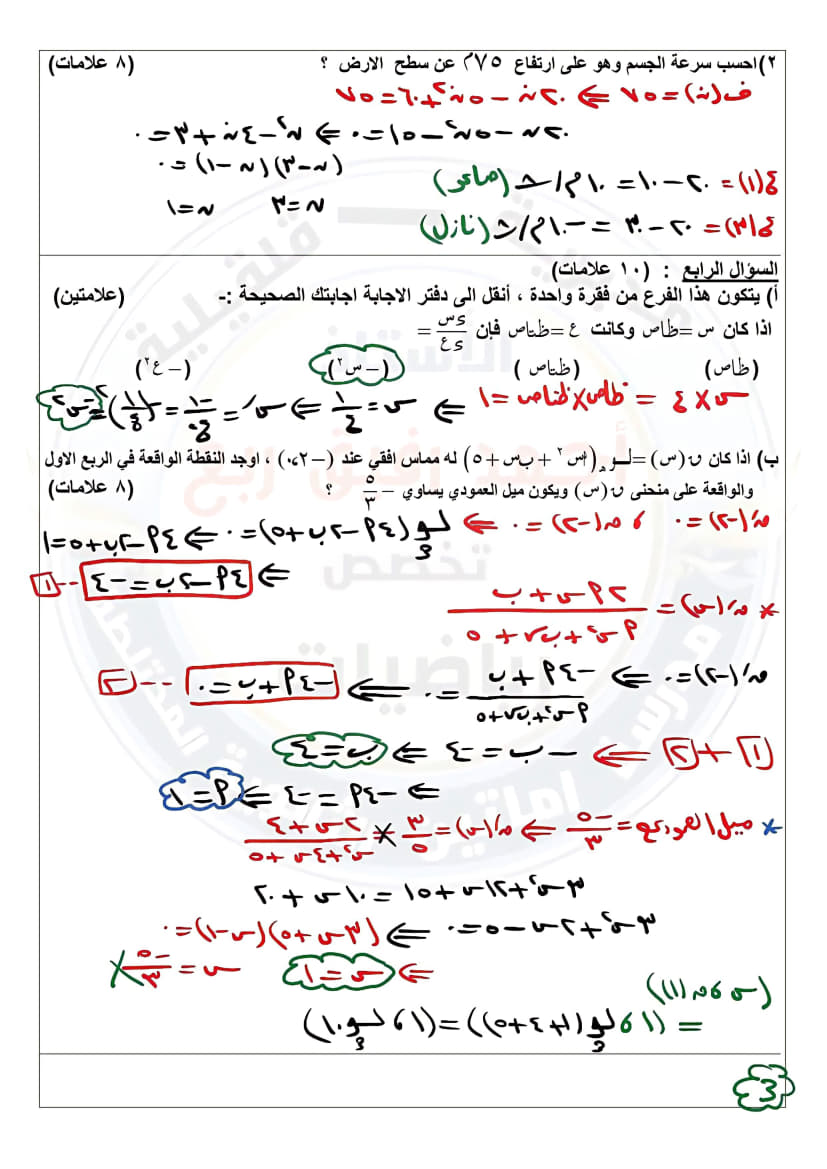 ٢) احسب سرعة الجسم وهو على ارتفاع ٧٥م عن سطح الارض ؟ (٨ علامات)
ف(ن) = ٧٥ ⇐ ٢٠ن - ٥ن٢ + ٦٠ = ٧٥
٢٠ن - ٥ن٢ - ١٥ = ٠ ⇐ ن٢ - ٤ن + ٣ = ٠
(ن-٣)(ن-١) = ٠
ن=٣ ن=١
ع(١) = ٢٠ - ١٠ = ١٠م/ث (صاعد)
ع(٣) = ٢٠ - ٣٠ = -١٠م/ث (نازل)
السؤال الرابع : (١٠ علامات)
أ) يتكون هذا الفرع من فقرة واحدة ، أنقل الى دفتر الاجابة اجابتك الصحيحة :- (علامتين)
اذا كان س = ظاص وكانت ع = ظتاص فإن ءس/ءع =
(ظاص) (ظتاص) (- س٢) (- ع٢)
س × ع = ظاص × ظتاص = ١ ⇐ س = ١/ع ⇐ س َ = -١/ع٢ = -(١/ع)٢ = -س٢
ب) اذا كان ن(س) = لــو هـ (أس٢ + ب س + ٥) له مماس افقي عند (-٢،٠) ، اوجد النقطة الواقعة في الربع الاول
والواقعة على منحنى ن(س) ويكون ميل العمودي يساوي -٥/٣ ؟
ن َ(-٢) = ٠ ، ن(-٢) = ٠ ⇐ لو هـ (٤أ - ٢ب + ٥) = ٠ ⇐ ٤أ - ٢ب + ٥ = ١
⇐ ٤أ - ٢ب = -٤ -- ١
* ن َ(س) = (٢أس + ب)/(أس٢ + ب س + ٥)
ن َ(-٢) = ٠ ⇐ (-٤أ + ب)/(أس٢ + ب س + ٥) = ٠ ⇐ -٤أ + ب = ٠ -- ٢
١ + ٢ ⇐ -ب = -٤ ⇐ ب = ٤
⇐ -٤أ = -٤ ⇐ أ = ١
* ميل العمودي = -٥/٣ ⇐ ن َ(س) = ٣/٥ × (٢س + ٤)/(س٢ + ٤س + ٥)
٣س٢ + ١٢س + ١٥ = ١٠س + ٢٠
٣س٢ + ٢س - ٥ = ٠ ⇐ (٣س + ٥)(س - ١) = ٠
⇐ س = ١ س = -٥/٣ ×
(س ، ن(١))
= (١ ، لو هـ (١+٤+٥)) = (١ ، لو هـ ١٠)
3
مديرية قلقيلية
الاستاذ
أحمد رفيق ربع
تخصص
رياضيات